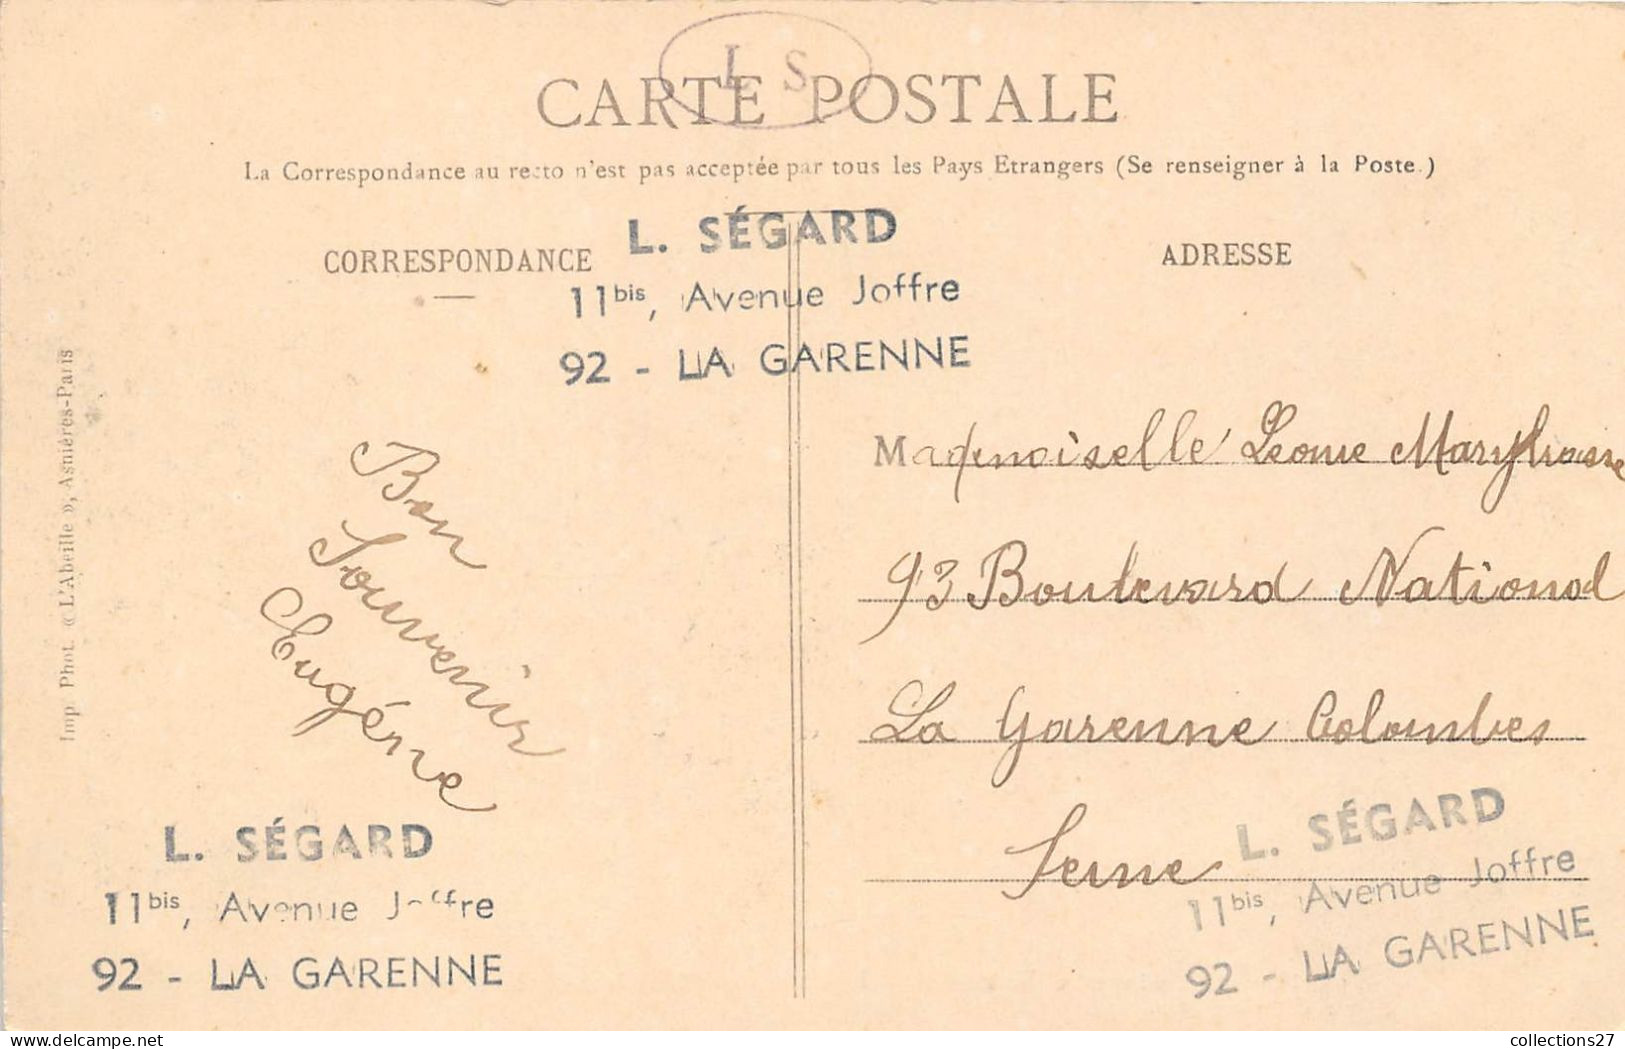 L S
CARTE POSTALE
La Correspondance au recto n'est pas acceptée par tous les Pays Etrangers (Se renseigner à la Poste.)
CORRESPONDANCE
ADRESSE
L. SÉGARD
11bis, Avenue Joffre
92 - LA GARENNE
Imp Phot. « L'Abeille », Asnières-Paris
Bon
Souvenir
Eugénie
Mademoiselle Leonie
93 Boulevard National
La Garenne Colombes
Seine
L. SÉGARD
11bis, Avenue Joffre
92 - LA GARENNE
L. SÉGARD
11bis, Avenue Joffre
92 - LA GARENNE
collections27